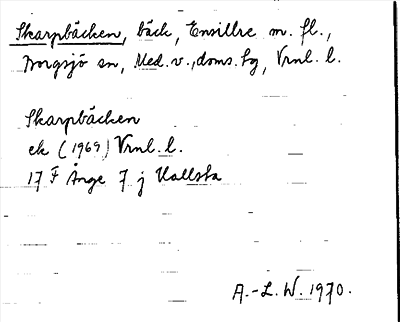 Skarpbäcken, bäck, Ensillre m. fl.,
Borgsjö sn, Med. v., doms. lg, Vrnl. l.
Skarpbäcken
ek (1969) Vrnl. l.
17 F Ånge 7 j Hallsta
A.-L. W. 1970.